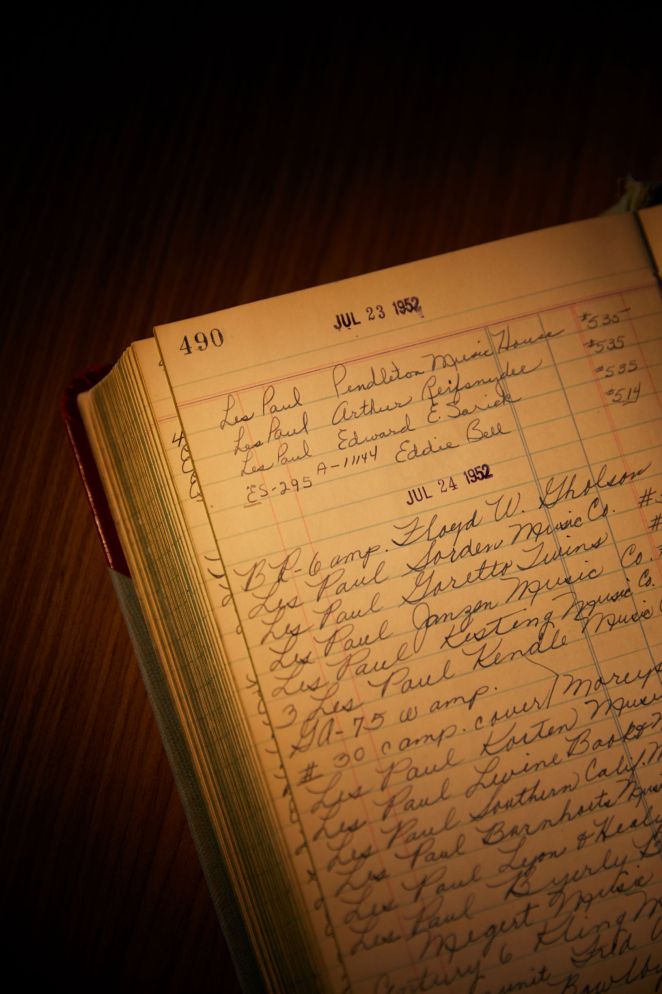 JUL 23 1952
490
Les Paul Pendleton Music House $535
Les Paul Arthur Reifsnyder $535
Les Paul Edward E. Sarick $535
ES-295 A-1144 Eddie Bell $514
JUL 24 1952
BR-6 amp. Floyd W. Gholson
Les Paul Sorden Music Co.
Les Paul Goretta Twins
Les Paul Janzen Music Co.
Les Paul Kesting Music Co.
3 Les Paul Kendle Music
GA-75 w amp.
# 30 c amp. cover
Les Paul Korten Music
Les Paul Levine
Les Paul Southern Calif.
Les Paul Barnharts
Les Paul Lyon & Healy
Les Paul Byerly
Megert Music
Century 6 Kling
Fred